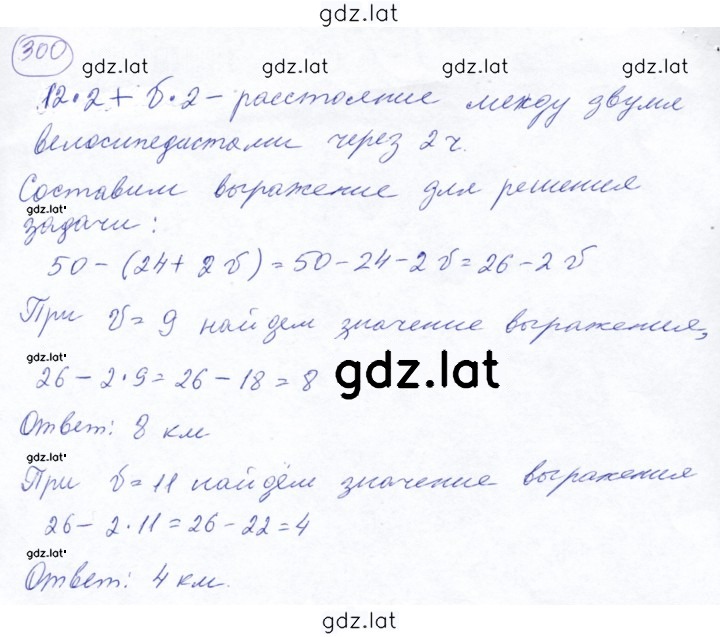 gdz.lat
300
gdz.lat gdz.lat gdz.lat
12·2 + v·2 – расстояние между двумя
велосипедистами через 2 ч.
Составим выражение для решения
gdz.lat
задачи:
50 – (24 + 2v) = 50 – 24 – 2v = 26 – 2v
При v = 9 найдем значение выражения,
gdz.lat
26 – 2·9 = 26 – 18 = 8 gdz.lat
Ответ: 8 км
gdz.lat
При v = 11 найдём значение выражения
26 – 2·11 = 26 – 22 = 4
gdz.lat
Ответ: 4 км.
gdz.lat